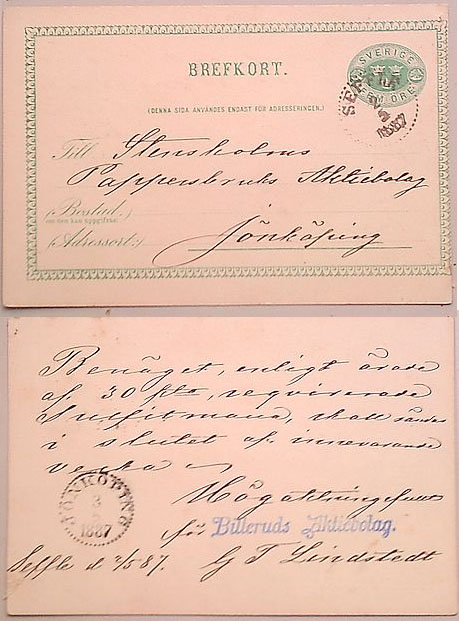 BREFKORT.
SVERIGE
FEM ÖRE
(DENNA SIDA ANVÄNDES ENDAST FÖR ADRESSERINGEN.)
SEFFLE
1887
Till Stensholms
Pappersbruks Aktiebolag
(Bostad,)
om den kan uppgifvas:
(Adressort:) Jönköping
Benäget, enligt ärade
af 30 psto, reqvirerade
Sulfitmassa, skall sändas
i slutet af innevarande
vecka
JÖNKÖPING
3
5
1887
Högaktningsfullt
för Billeruds Aktiebolag.
Seffle d 2/5 87. G T Lindstedt